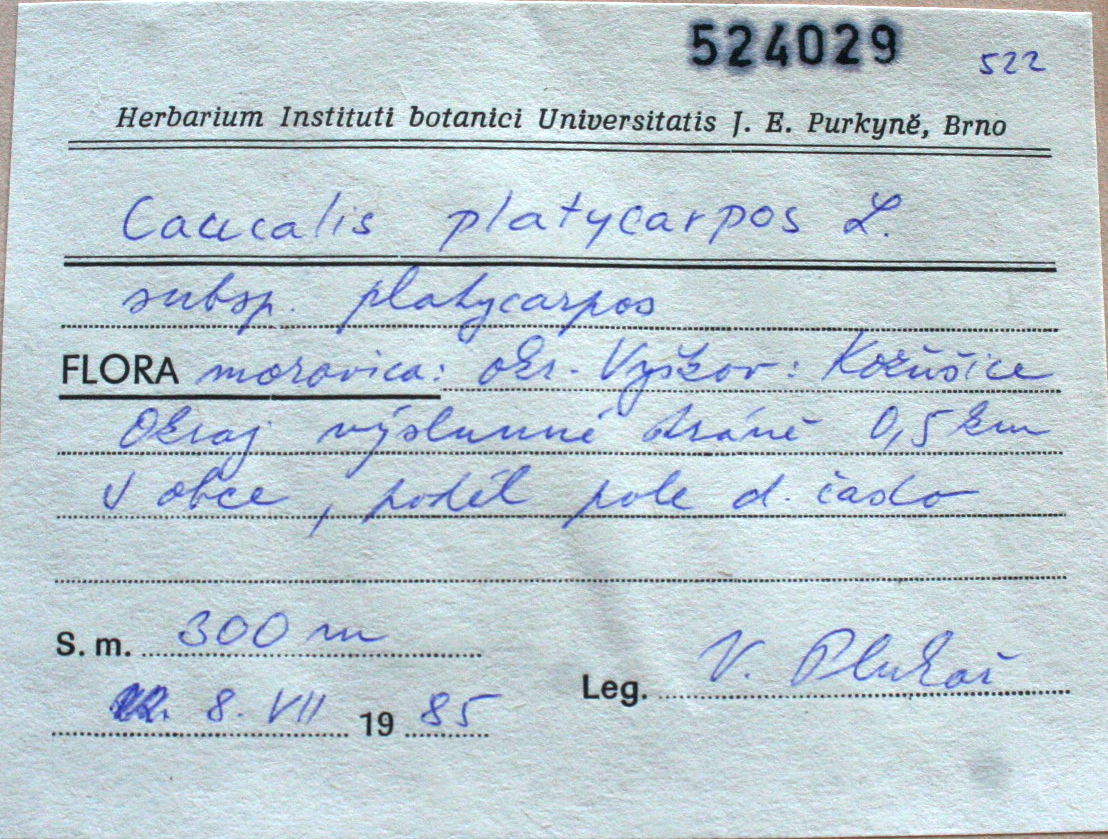 524029 522
Herbarium Instituti botanici Universitatis J. E. Purkyně, Brno
Caucalis platycarpos L.
subsp. platycarpos
FLORA moravica: okr. Vyškov: Kožušice
Okraj výslunné stráně 0,5 km
V obce, podél pole d. často
S. m. 300 m
Leg. V. Plukař
8. VII 1985